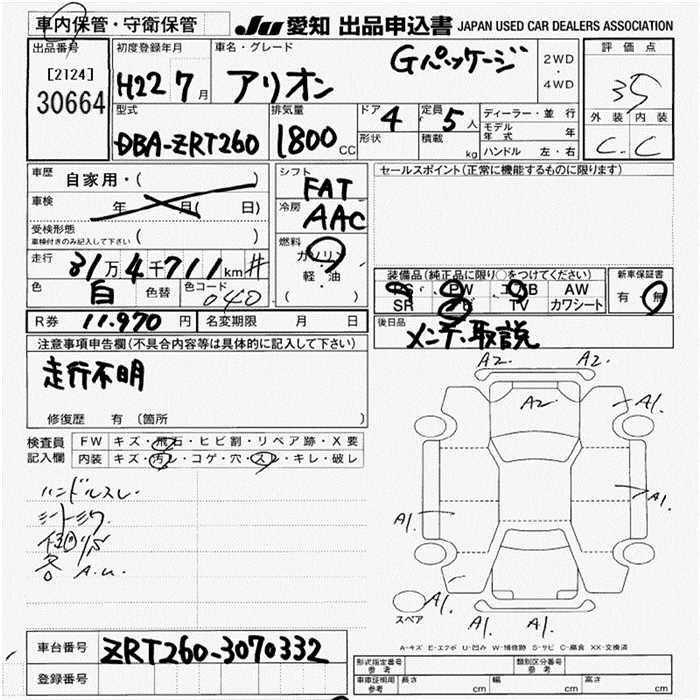 車内保管・守衛保管
JU 愛知 出品申込書 JAPAN USED CAR DEALERS ASSOCIATION
出品番号
[2124]
30664
初度登録年月
H22 7月
車名・グレード
アリオン Gパッケージ
2WD
・
4WD
評価点
3.5
外装 内装
C C
型式
DBA-ZRT260
排気量
1800 CC
ドア 4
形状
定員 5人
積載 kg
ディーラー・並行
モデル年式 年
ハンドル 左・右
車歴 自家用・( )
車検 年 月( 日)
受検形態
車検付きのみ記入して下さい ( )
走行 31万4千711km #
色 白 色替 色コード 040
R券 11.970 円 名変期限 月 日
シフト FAT
冷房 AAC
燃料
ガソリン
軽・油
( )
セールスポイント(正常に機能するものに限ります)
装備品(純正品に限り○をつけてください)
PS PW エアB AW
SR ナビ TV カワシート
新車保証書
有 無
後日品 メンテ・取説
注意事項申告欄(不具合内容等は具体的に記入して下さい)
走行不明
修復歴 有 (箇所 )
検査員記入欄
FW キズ・飛石・ヒビ割・リペア跡・X要
内装 キズ・汚レ・コゲ・穴・スレ・キレ・破レ
ハンドルスレ
A.U.
A2. A2.
A2.
A1.
A1.
A1.
A1.
A1. A1.
スペア
A-キズ E-エクボ U-凹み W-補修跡 S-サビ C-腐食 XX-交換済
車台番号 ZRT260-3070332
登録番号
形式指定番号 参考
類別区分番号 参考
車庫証明用 参考
長さ cm 幅 cm 高さ cm